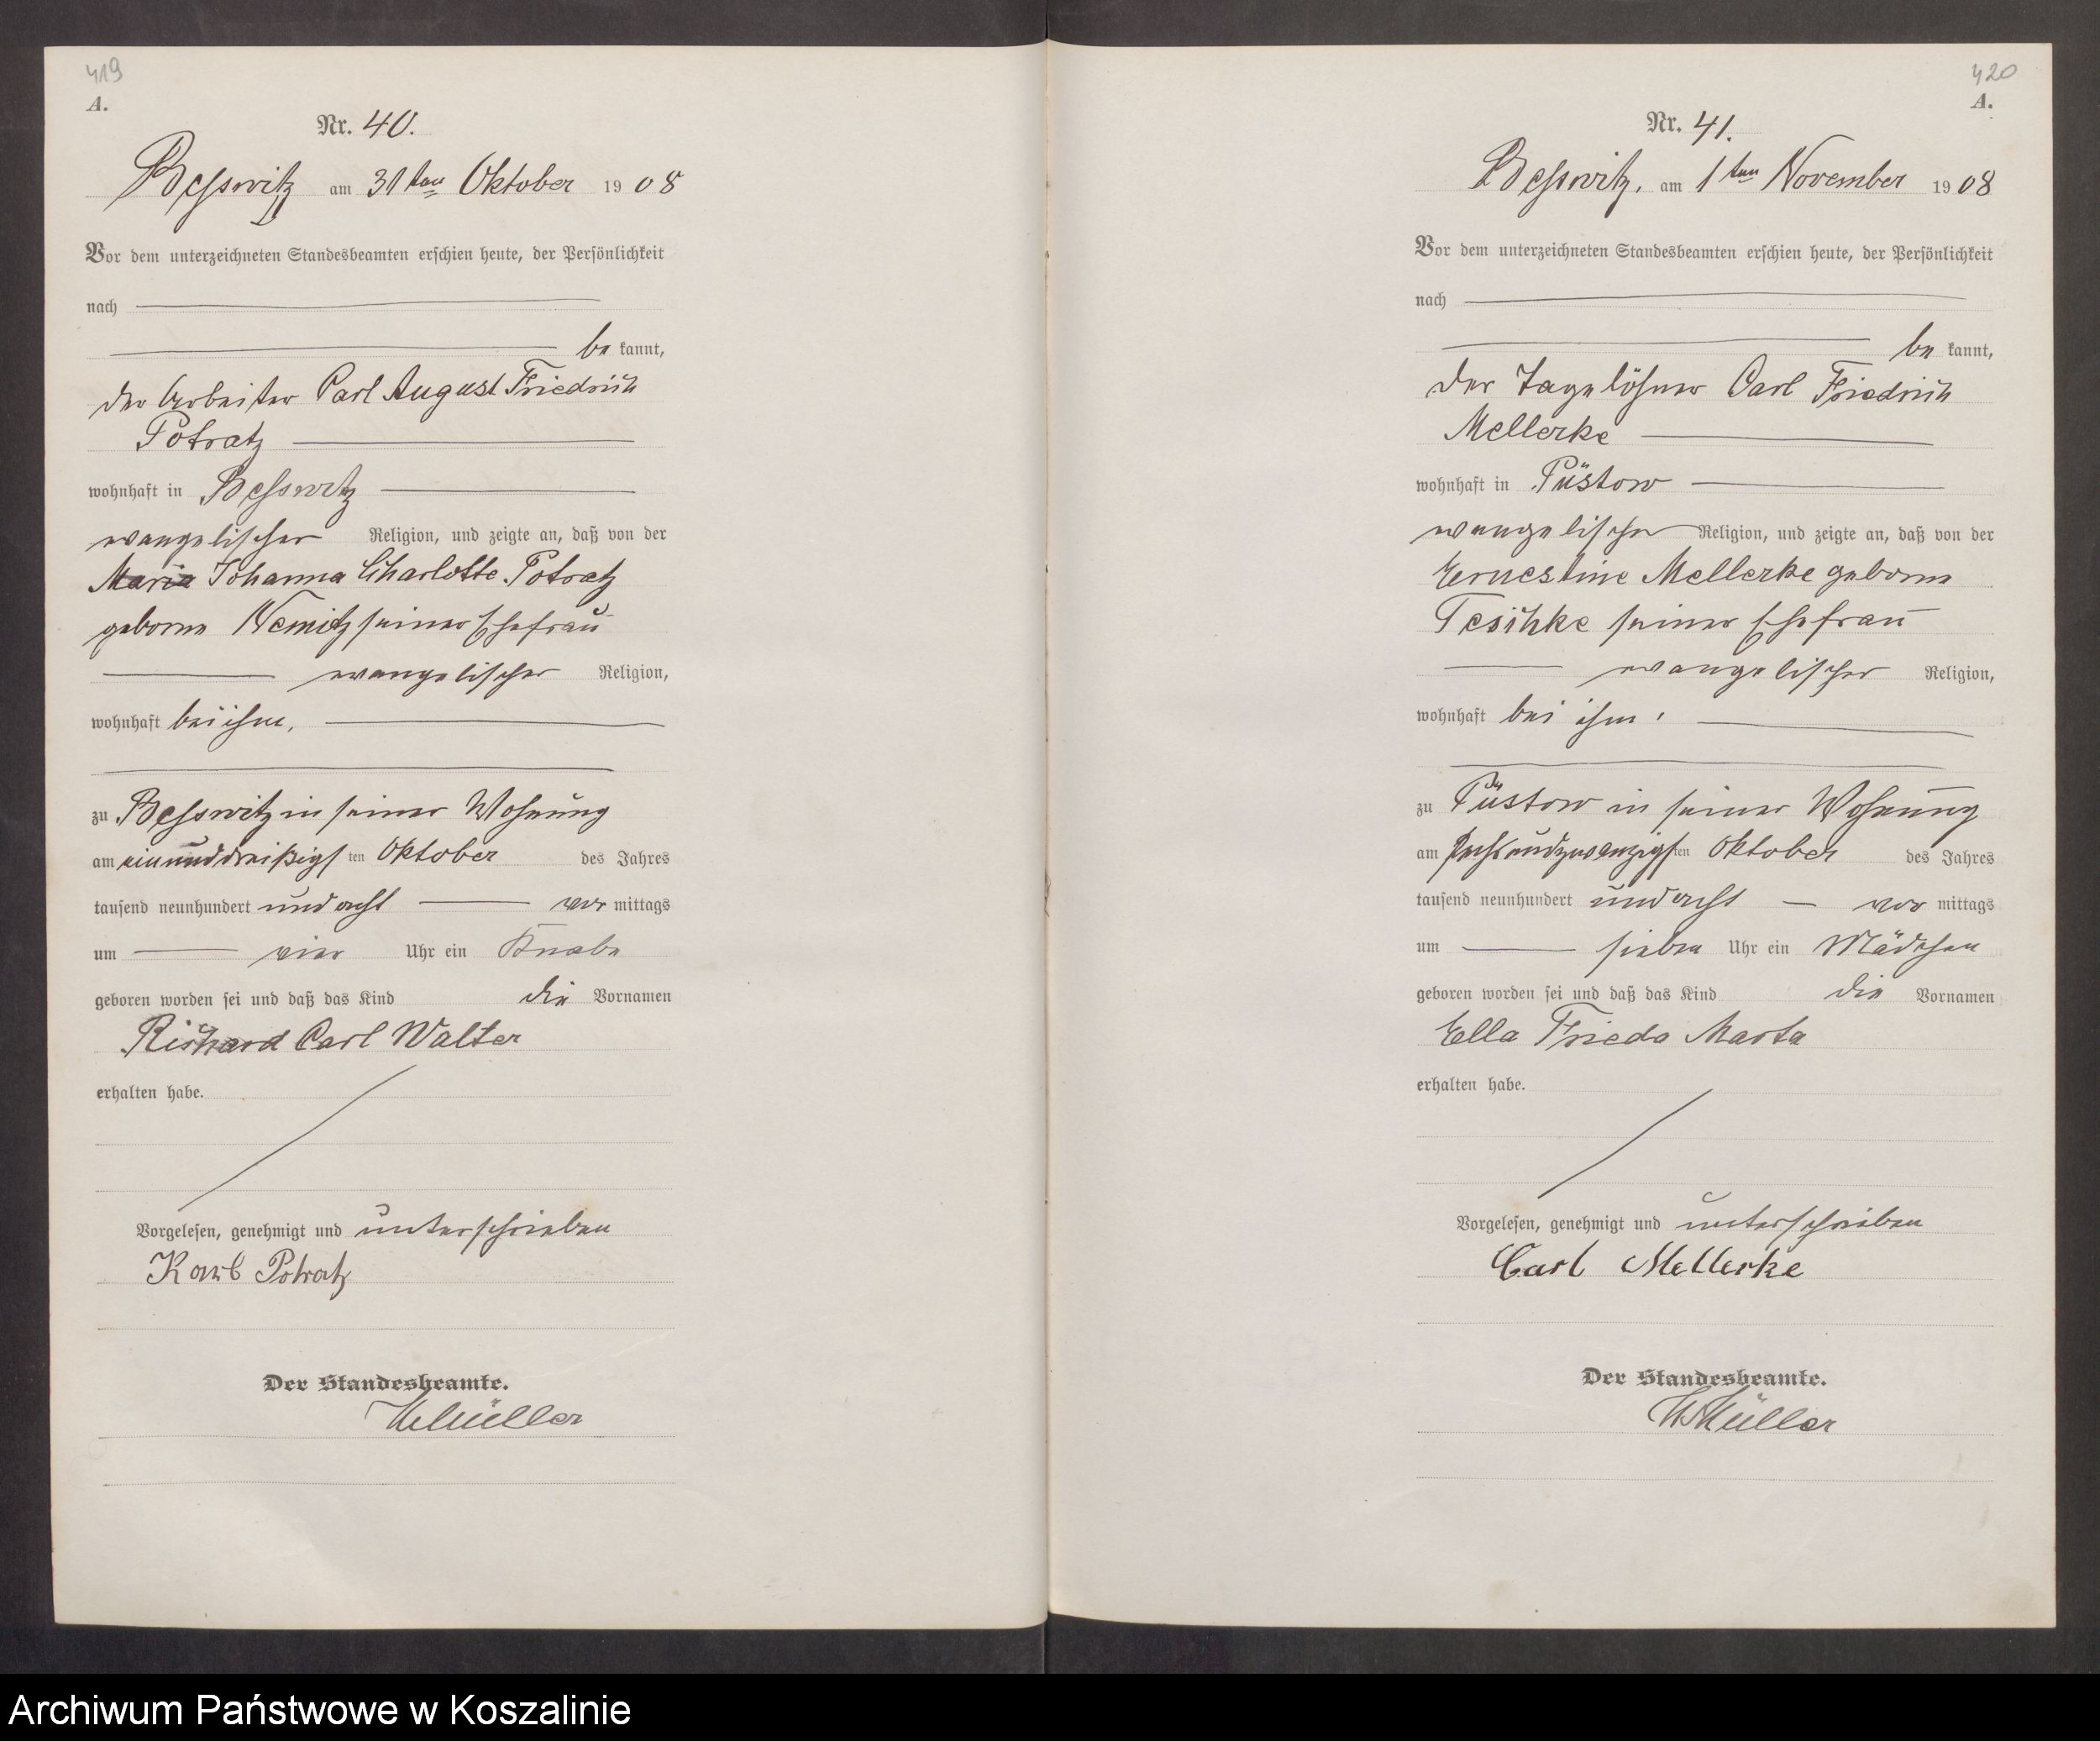 419
A.
Nr. 40.
Besswitz am 31ten Oktober 1908
Vor dem unterzeichneten Standesbeamten erschien heute, der Persönlichkeit
nach
be kannt,
der Arbeiter Carl August Friedrich
Potratz
wohnhaft in Besswitz
evangelischer Religion, und zeigte an, daß von der
Maria Johanna Charlotte Potratz
geborne Nemitz seiner Ehefrau
evangelischer Religion,
wohnhaft bei ihm,
zu Besswitz in seiner Wohnung
am einunddreißigsten Oktober des Jahres
tausend neunhundert und acht vor mittags
um vier Uhr ein Knabe
geboren worden sei und daß das Kind die Vornamen
Richard Carl Walter
erhalten habe.
Vorgelesen, genehmigt und unterschrieben
Karl Potratz
Der Standesbeamte.
Müller
420
A.
Nr. 41.
Besswitz, am 1ten November 1908
Vor dem unterzeichneten Standesbeamten erschien heute, der Persönlichkeit
nach
be kannt,
der Tagelöhner Carl Friedrich
Mellerke
wohnhaft in Püstow
evangelischer Religion, und zeigte an, daß von der
Ernestine Mellerke geborne
Teschke seiner Ehefrau
evangelischer Religion,
wohnhaft bei ihm,
zu Püstow in seiner Wohnung
am sechsundzwanzigsten Oktober des Jahres
tausend neunhundert und acht vor mittags
um sieben Uhr ein Mädchen
geboren worden sei und daß das Kind die Vornamen
Ella Frieda Marta
erhalten habe.
Vorgelesen, genehmigt und unterschrieben
Carl Mellerke
Der Standesbeamte.
Müller
Archiwum Państwowe w Koszalinie